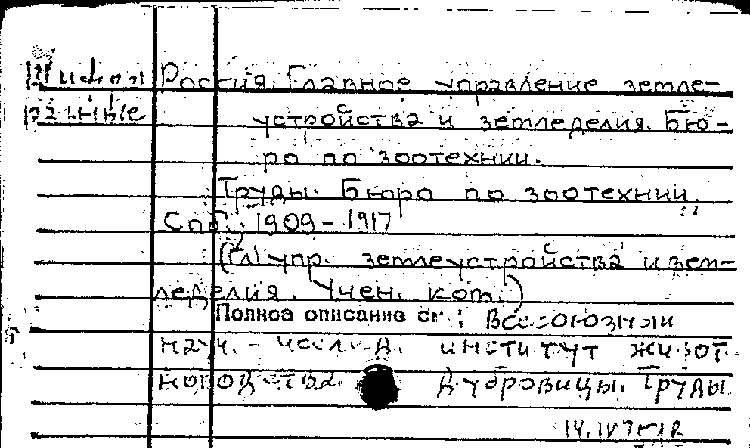 Россия. Главное управление земле-
устройства и земледелия. Бю-
ро по зоотехнии.
Труды. Бюро по зоотехнии.
Спб., 1909-1917
(Гл. упр. землеустройства и зем-
леделия. Учен. ком.)
Полное описание см.: Всесоюзный
науч.-исслед. институт живот-
новодства. Дубровицы. Труды